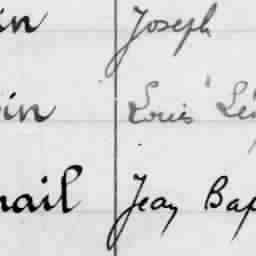 in Joseph
in Louis Lé
ail Jean Bap